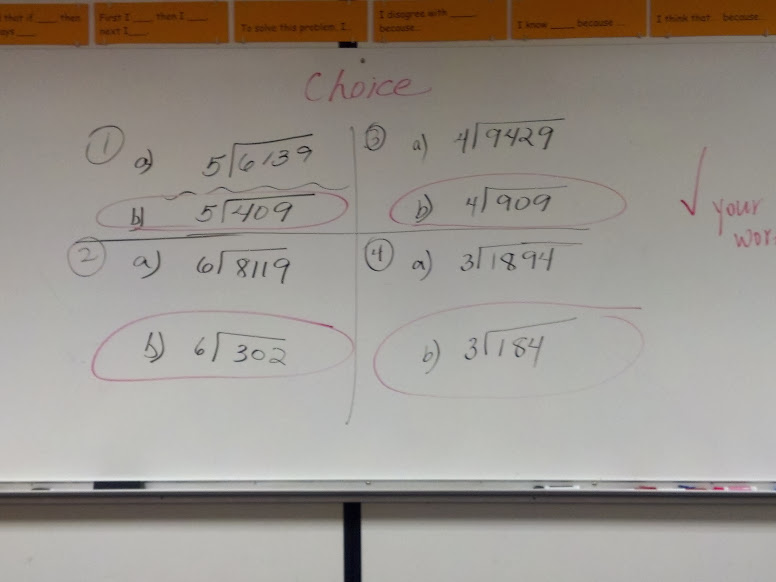 that if ____ then
ays ____
First I ____ then I ____.
next I ____.
To solve this problem I...
I disagree with ____
because...
I know ____ because ...
I think that... because...
Choice
1 a) 5)6139
b) 5)409
2 a) 6)8119
b) 6)302
3 a) 4)9429
b) 4)909
4 a) 3)1894
b) 3)184
√ your
wor